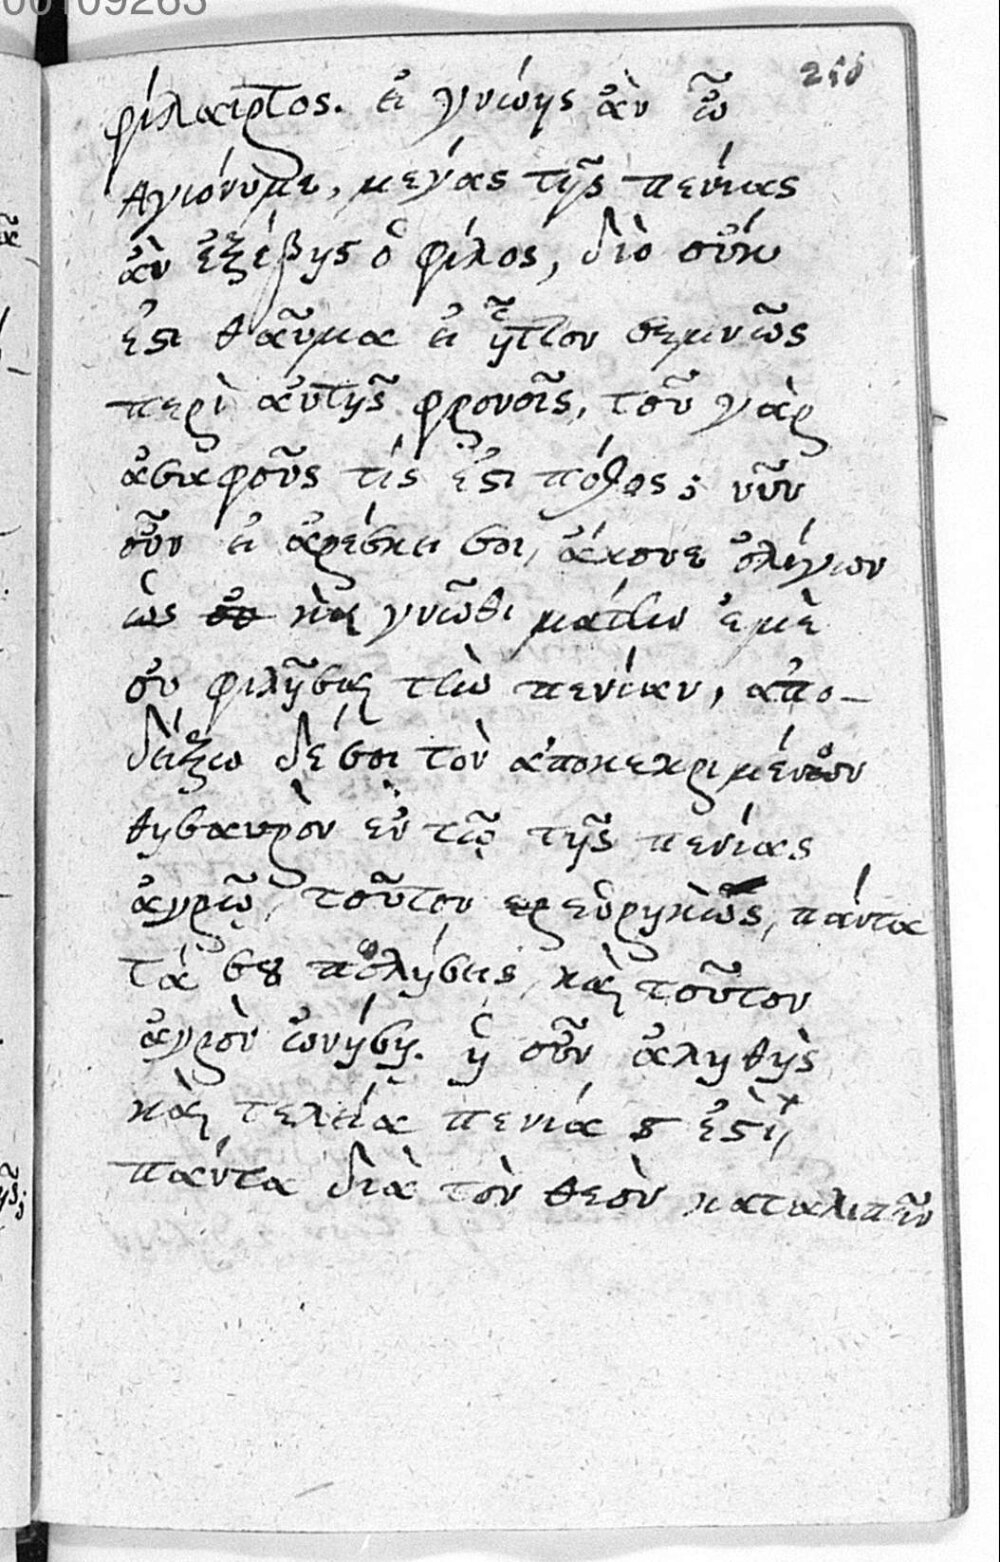 φίλαιρτος. εἰ γνώῃς ἂν ὦ
Ἁγιόνυμε, μέγας τῆς πενίας
ἂν ἐξέβης ὁ φίλος, διὸ οὔκ
ἐστι θαῦμα εἰ ἧττον σεμνῶς
περὶ αὐτῆς φρονοῖς, τοῦ γὰρ
ἀσαφοῦς τίς ἐστι πόθος; νῦν
οὖν εἰ ἀρέσκει σοι, ἄκουε ὀλίγων
ὡς καὶ γνῶθι μάτην ἐμὲ
οὐ φιλῆσαι τὴν πενίαν, ἀπο-
δείξω δέ σοι τὸν ἀποκεκριμένον
θησαυρὸν ἐν τῷ τῆς πενίας
ἀγρῷ, τοῦτον εὑρηκὼς, πάντα
τά σου πολήσεις, καὶ τοῦτον
ἀγρὸν ὠνήσῃ. ἡ οὖν ἀληθὴς
καὶ τελεία πενία ȣ ἐστὶ,
πάντα διὰ τὸν θεὸν καταλιπεῖν